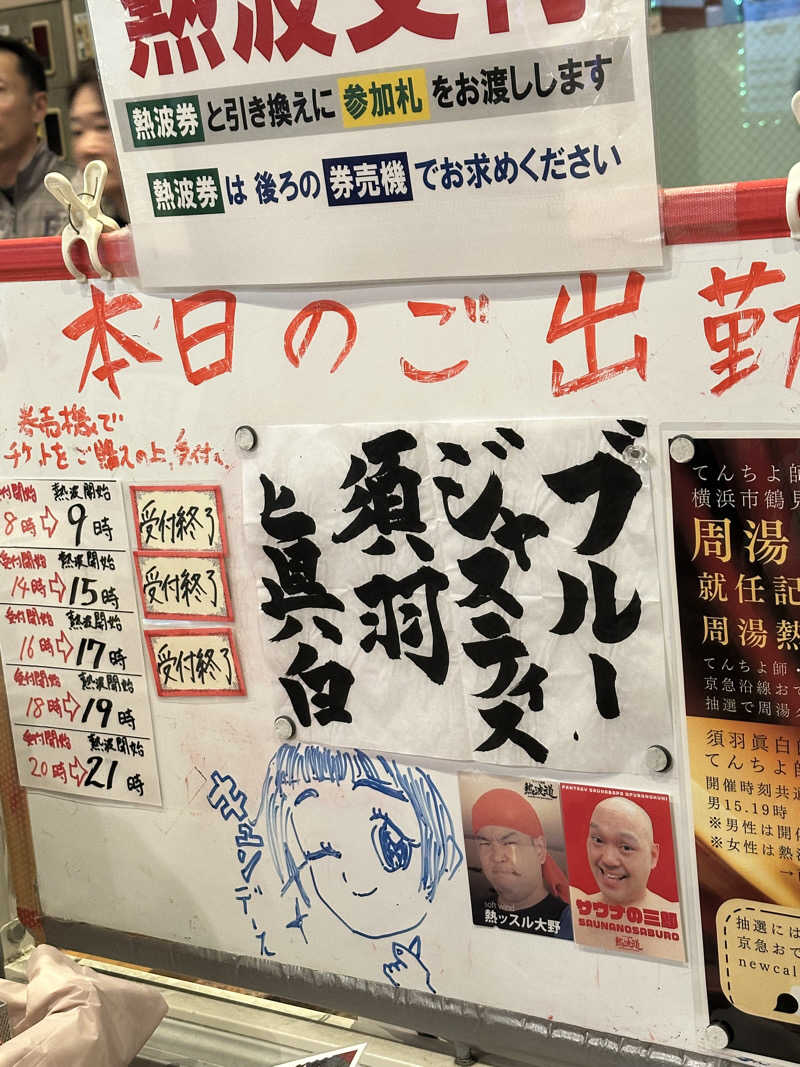 熱波受付
熱波券と引き換えに参加札をお渡しします
熱波券は後ろの券売機でお求めください
本日のご出勤
券売機で
チケットをご購入の上、受付へ
受付開始 熱波開始
8時⇨9時
受付終了
受付開始 熱波開始
14時⇨15時
受付終了
受付開始 熱波開始
16時⇨17時
受付終了
受付開始 熱波開始
18時⇨19時
受付開始 熱波開始
20時⇨21時
ブルー
ジャスティス
須羽
ヒ眞白
キュンデース
熱波道
soft wind
熱ッスル大野
FANTASY SAUNA&SPA OFURONOKUNI
サウナの三郎
SAUNANOSABURO
熱波道
てんちよ師
横浜市鶴見
周湯
就任記
周湯熱
てんちよ師
京急沿線おで
抽選で周湯
須羽眞白
てんちよ師
開催時刻共
男15.19時
※男性は開
※女性は熱
→
抽選には
京急おで
newcal